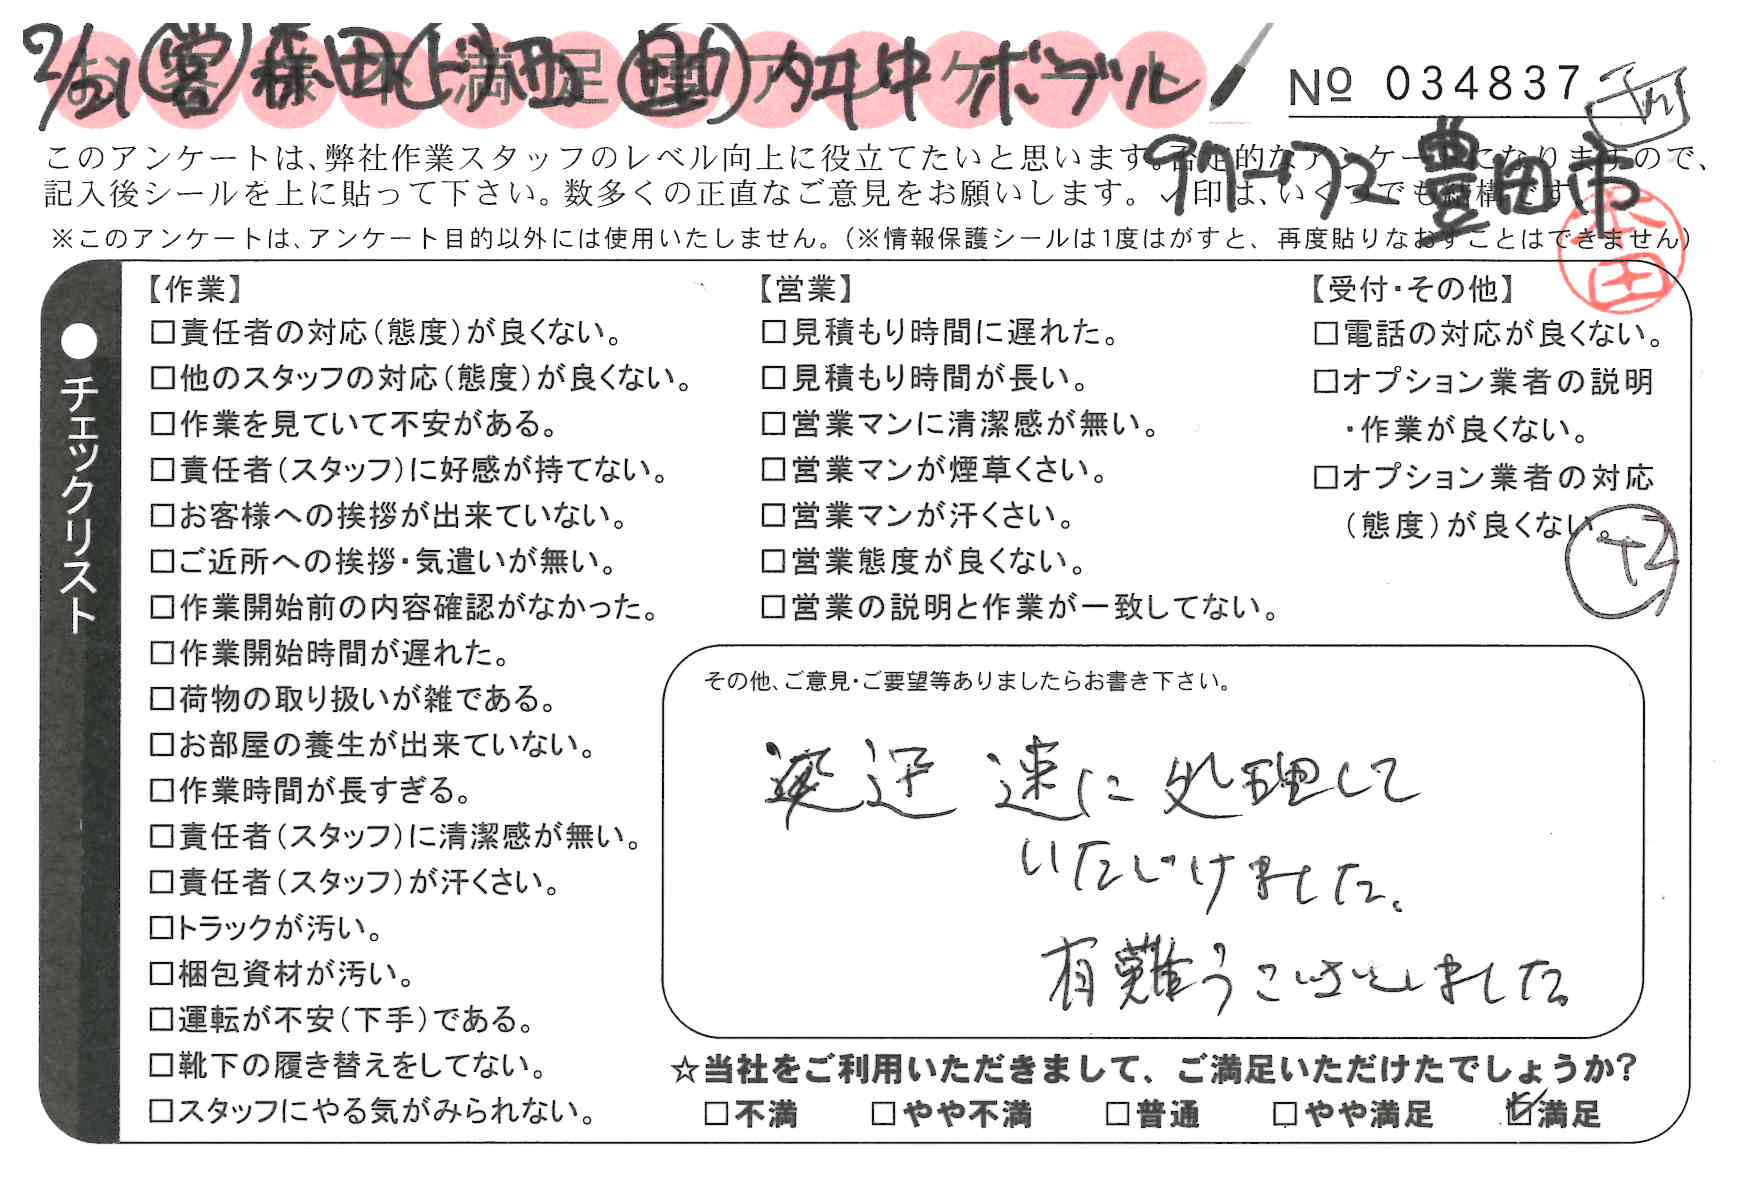 2/21
お客様不満足度アンケート
No 034837
豊田市
このアンケートは、弊社作業スタッフのレベル向上に役立てたいと思います。否定的なアンケートになりますので、
記入後シールを上に貼って下さい。数多くの正直なご意見をお願いします。✓印は、いくつでも結構です。
※このアンケートは、アンケート目的以外には使用いたしません。(※情報保護シールは1度はがすと、再度貼りなおすことはできません)
本田
●チェックリスト
【作業】
□責任者の対応(態度)が良くない。
□他のスタッフの対応(態度)が良くない。
□作業を見ていて不安がある。
□責任者(スタッフ)に好感が持てない。
□お客様への挨拶が出来ていない。
□ご近所への挨拶・気遣いが無い。
□作業開始前の内容確認がなかった。
□作業開始時間が遅れた。
□荷物の取り扱いが雑である。
□お部屋の養生が出来ていない。
□作業時間が長すぎる。
□責任者(スタッフ)に清潔感が無い。
□責任者(スタッフ)が汗くさい。
□トラックが汚い。
□梱包資材が汚い。
□運転が不安(下手)である。
□靴下の履き替えをしてない。
□スタッフにやる気がみられない。
【営業】
□見積もり時間に遅れた。
□見積もり時間が長い。
□営業マンに清潔感が無い。
□営業マンが煙草くさい。
□営業マンが汗くさい。
□営業態度が良くない。
□営業の説明と作業が一致してない。
【受付・その他】
□電話の対応が良くない。
□オプション業者の説明
・作業が良くない。
□オプション業者の対応
(態度)が良くない。
+2
その他、ご意見・ご要望等ありましたらお書き下さい。
迅速に処理して
いただけました。
有難うございました。
☆当社をご利用いただきまして、ご満足いただけたでしょうか?
□不満 □やや不満 □普通 □やや満足 ☑満足